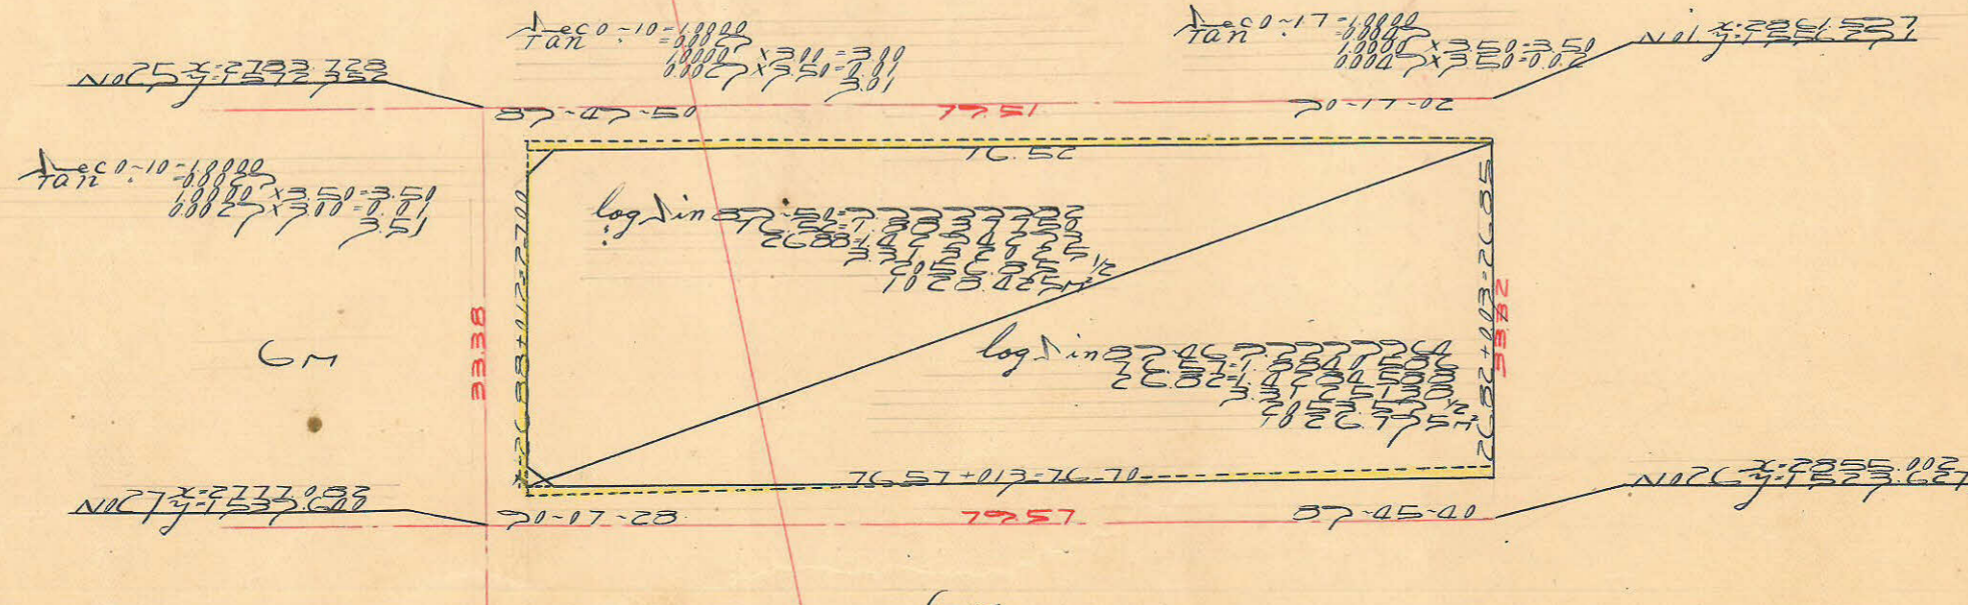 Sec 0-10=1.0000
Tan " =0.0029
1.0000 ×3.00=3.00
0.0029×3.50=0.01
3.01
Sec 0-17=1.0000
Tan " =0.0049
1.0000 ×3.50=3.50
0.0049×3.50=0.02
No25 x=2783.728
y=1572.352
No1 x=2861.597
y=1556.291
89-49-50
79.51
90-17-02
76.52
Sec 0-10=1.0000
Tan " =0.0029
1.0000×3.50=3.50
0.0029×3.00=0.01
3.51
log Sin 89-50=9.9999982
76.52=1.8837750
2688=1.4294293
3.3132025
2056.85 1/2
1028.425M²
33.38
26.88+0.12=27.00
log Sin 89-46=9.9999964
76.57=1.8840586
26.82=1.4284588
3.3125138
2053.59 1/2
1026.795M²
26.82+0.03=26.85
33.32
6M
76.57+0.13=76.70
No27 x=2777.082
y=1539.640
No26 x=2855.002
y=1523.627
90-07-28
79.57
89-45-40